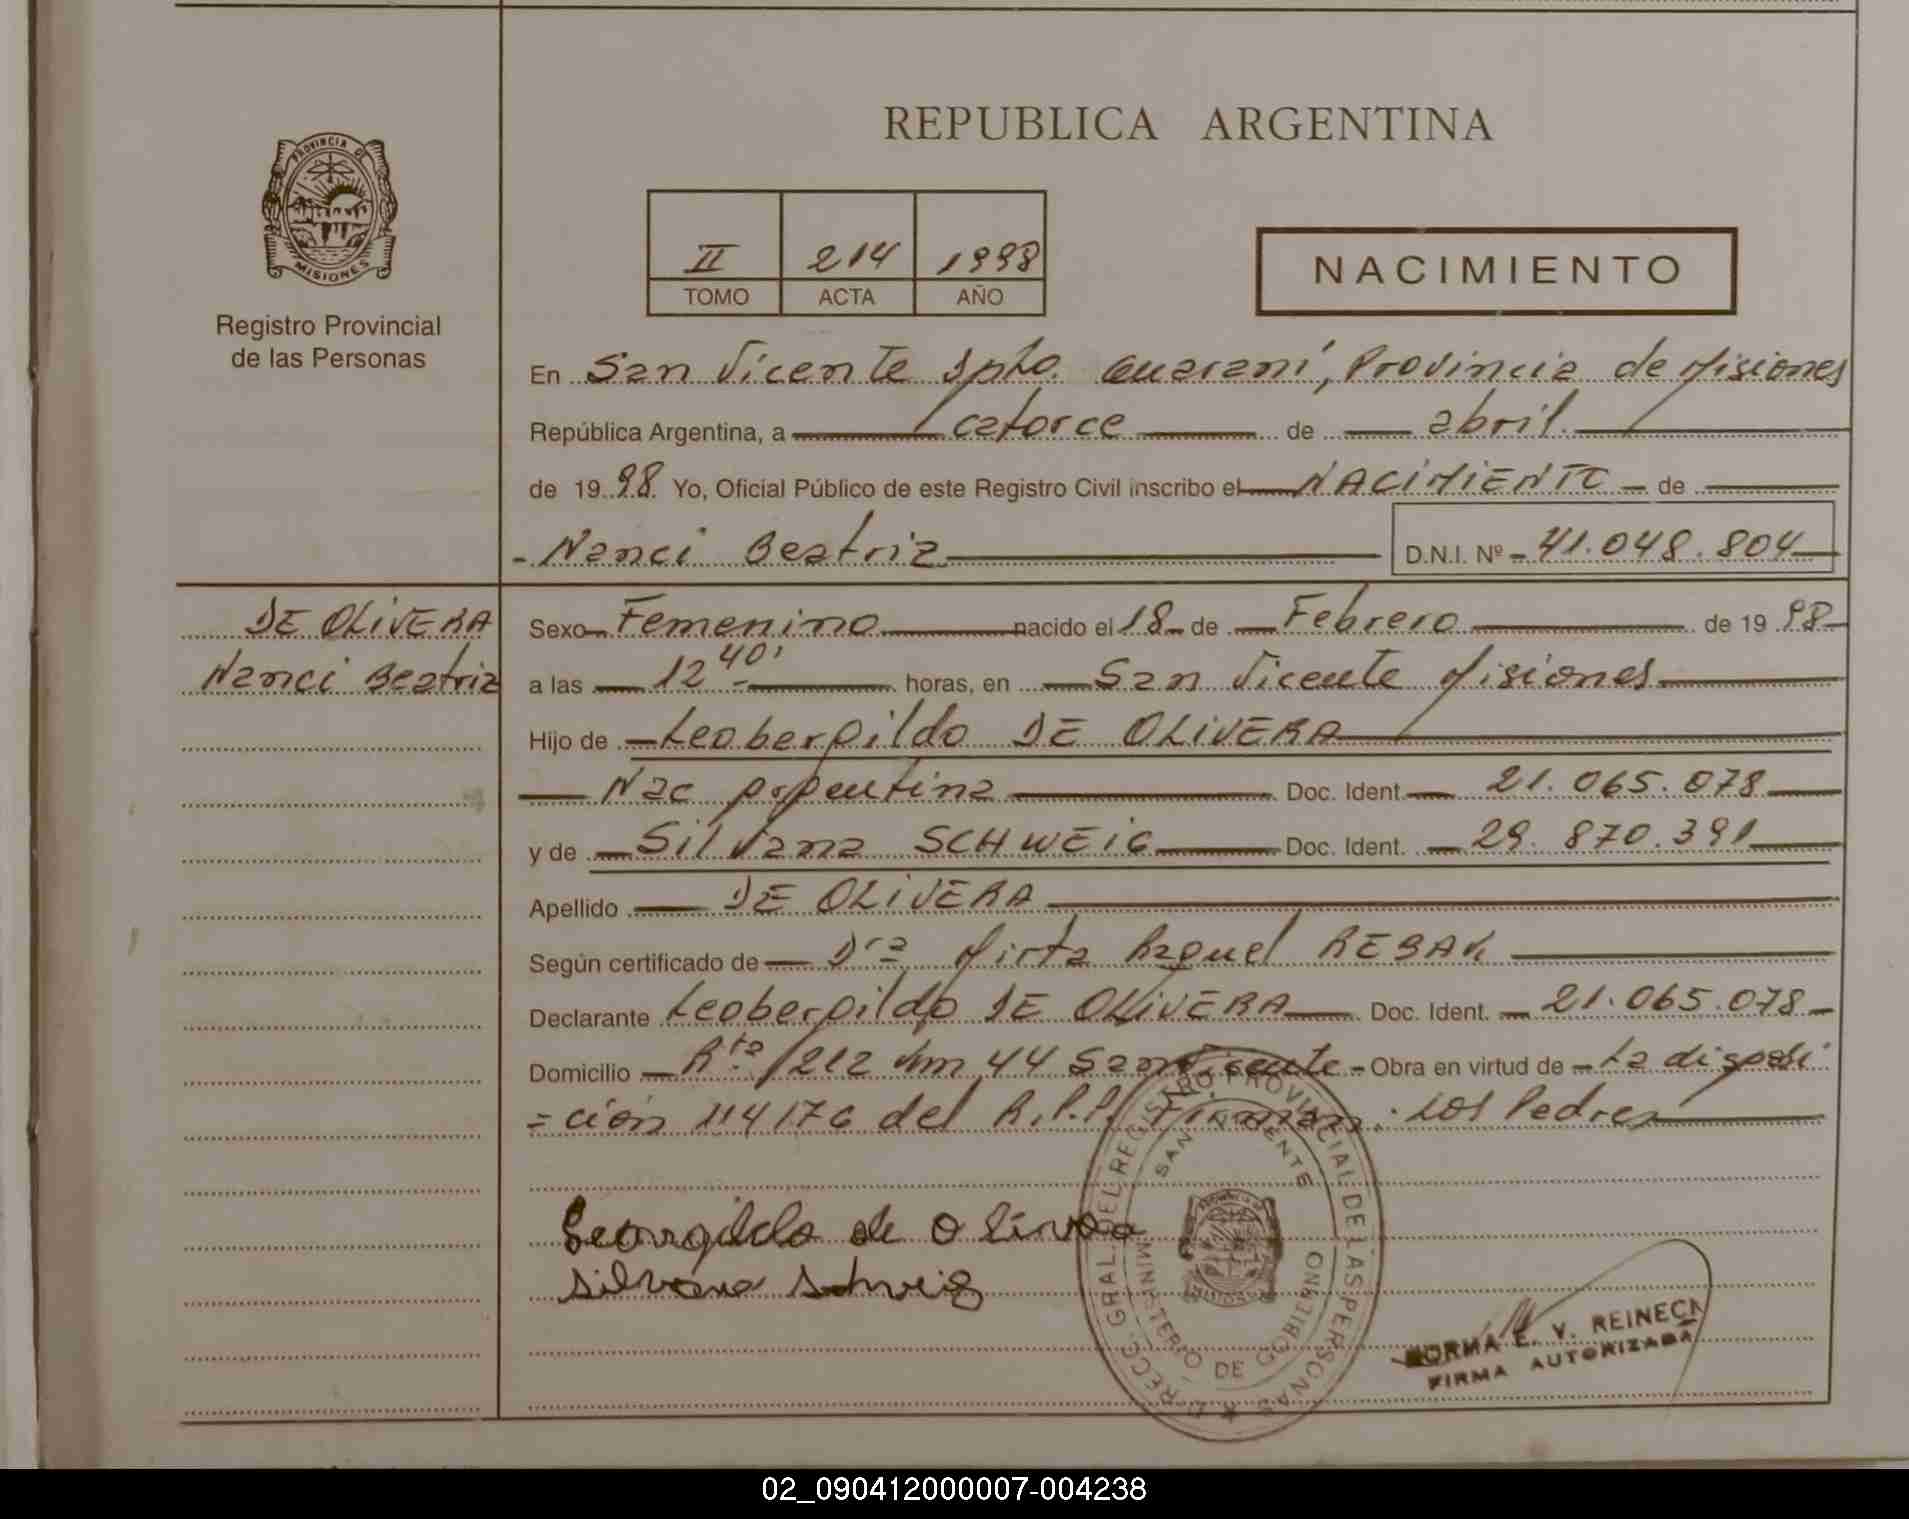 REPUBLICA ARGENTINA
PROVINCIA DE
MISIONES
Registro Provincial
de las Personas
II 214 1998
TOMO ACTA AÑO
NACIMIENTO
En San Vicente Dpto. Guaraní, Provincia de Misiones
República Argentina, a catorce de abril
de 1998 Yo, Oficial Público de este Registro Civil inscribo el NACIMIENTO de
Nanci Beatriz D.N.I. Nº 41.048.804
DE OLIVERA
Nanci Beatriz
Sexo Femenino nacido el 18 de Febrero de 1998
a las 12 40' horas, en San Vicente Misiones
Hijo de Leobergildo DE OLIVERA
Nac Argentina Doc. Ident. 21.065.078
y de Silvana SCHWEIG Doc. Ident. 29.870.391
Apellido DE OLIVERA
Según certificado de Dra Mirta Raquel REBAK
Declarante Leobergildo DE OLIVERA Doc. Ident. 21.065.078
Domicilio Rta 212 km 44 San Vicente - Obra en virtud de La disposi
=ción 114176 del R.P.P. Firman: Los Padres
Leorgildo de Olivera
Silvana Schweig
DIRECC. GRAL. DEL REGISTRO PROVINCIAL DE LAS PERSONAS
SAN VICENTE
MINISTERIO DE GOBIERNO
NORMA E. V. REINECK
FIRMA AUTORIZADA
02_090412000007-004238